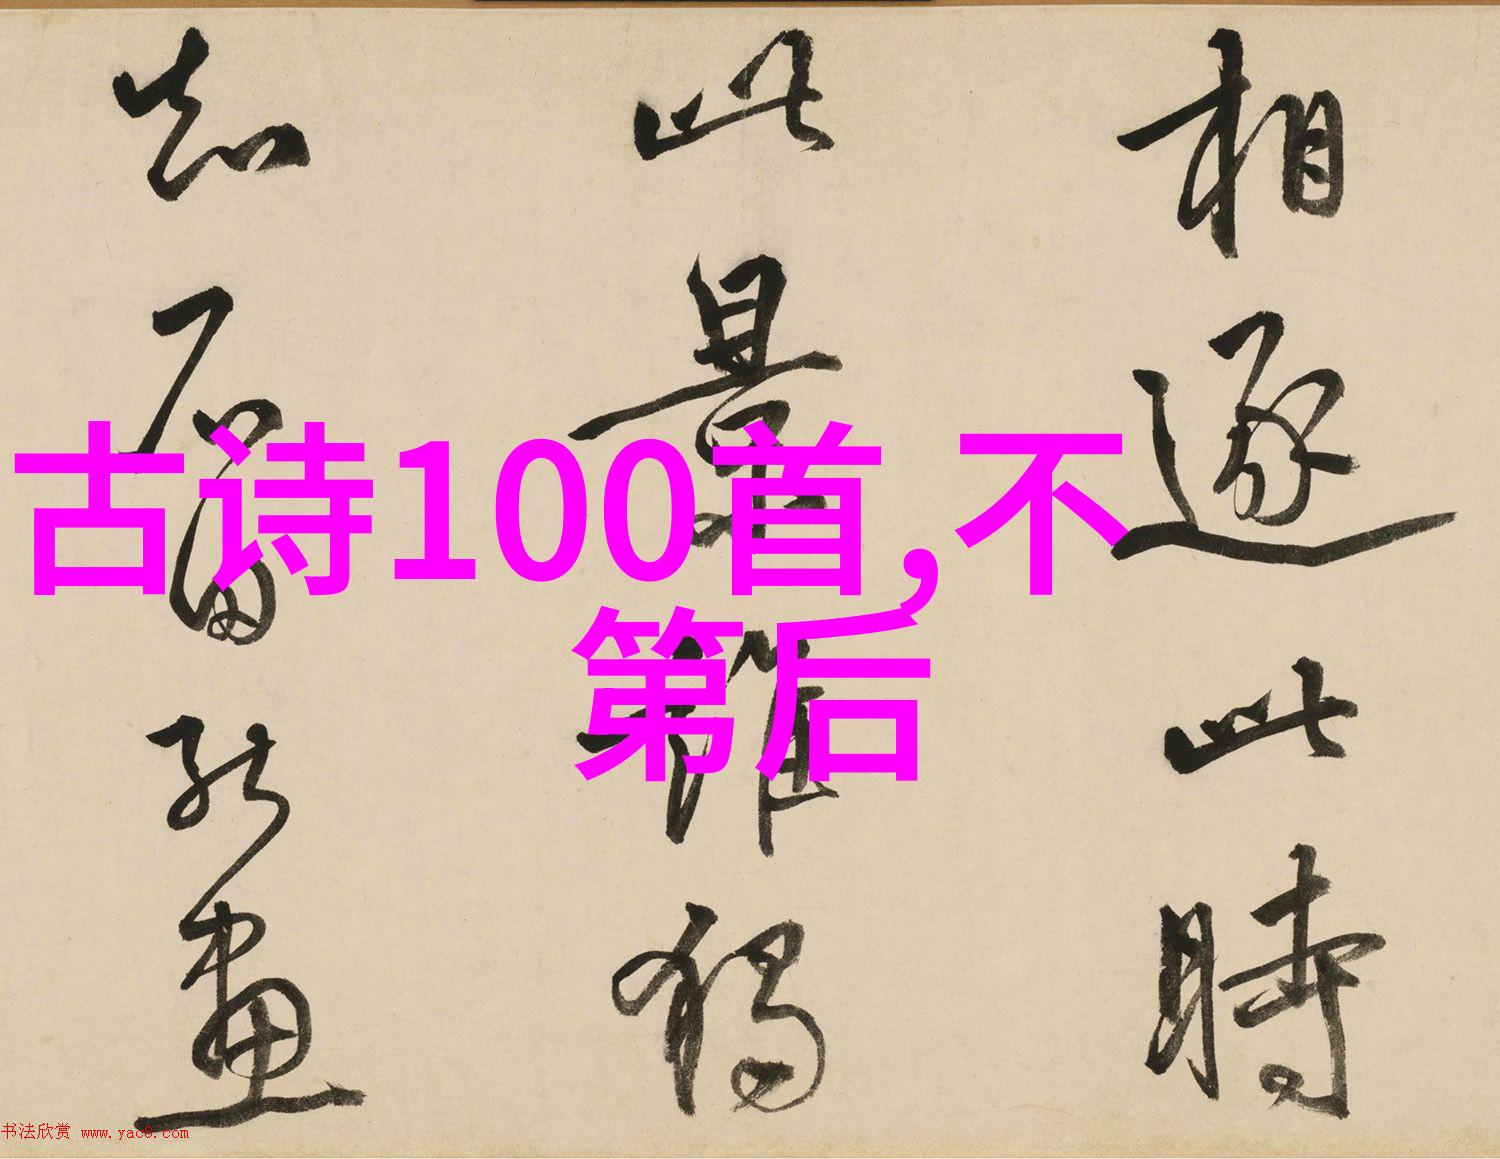 相逐此時
此景雖獨
知
画
古诗100首,不
第后
书法欣赏 www.yac8.com